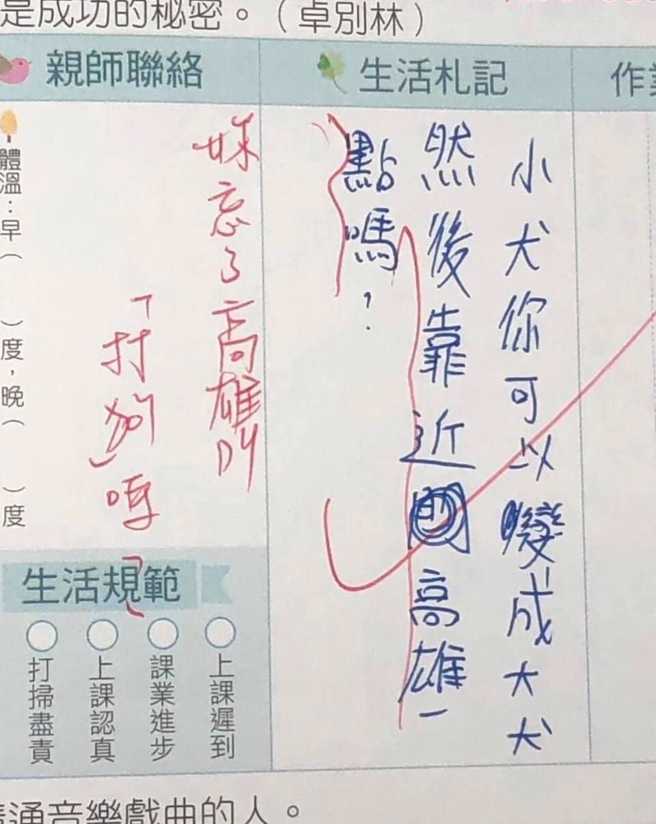 是成功的秘密。（卓別林）
親師聯絡
生活札記
作業
小犬你可以變成大犬
然後靠近高雄一
點嗎？
妹忘了高雄叫
「打狗」
體溫：早（　）度，晚（　）度
生活規範
上課遲到
課業進步
上課認真
打掃盡責
通音樂戲曲的人。